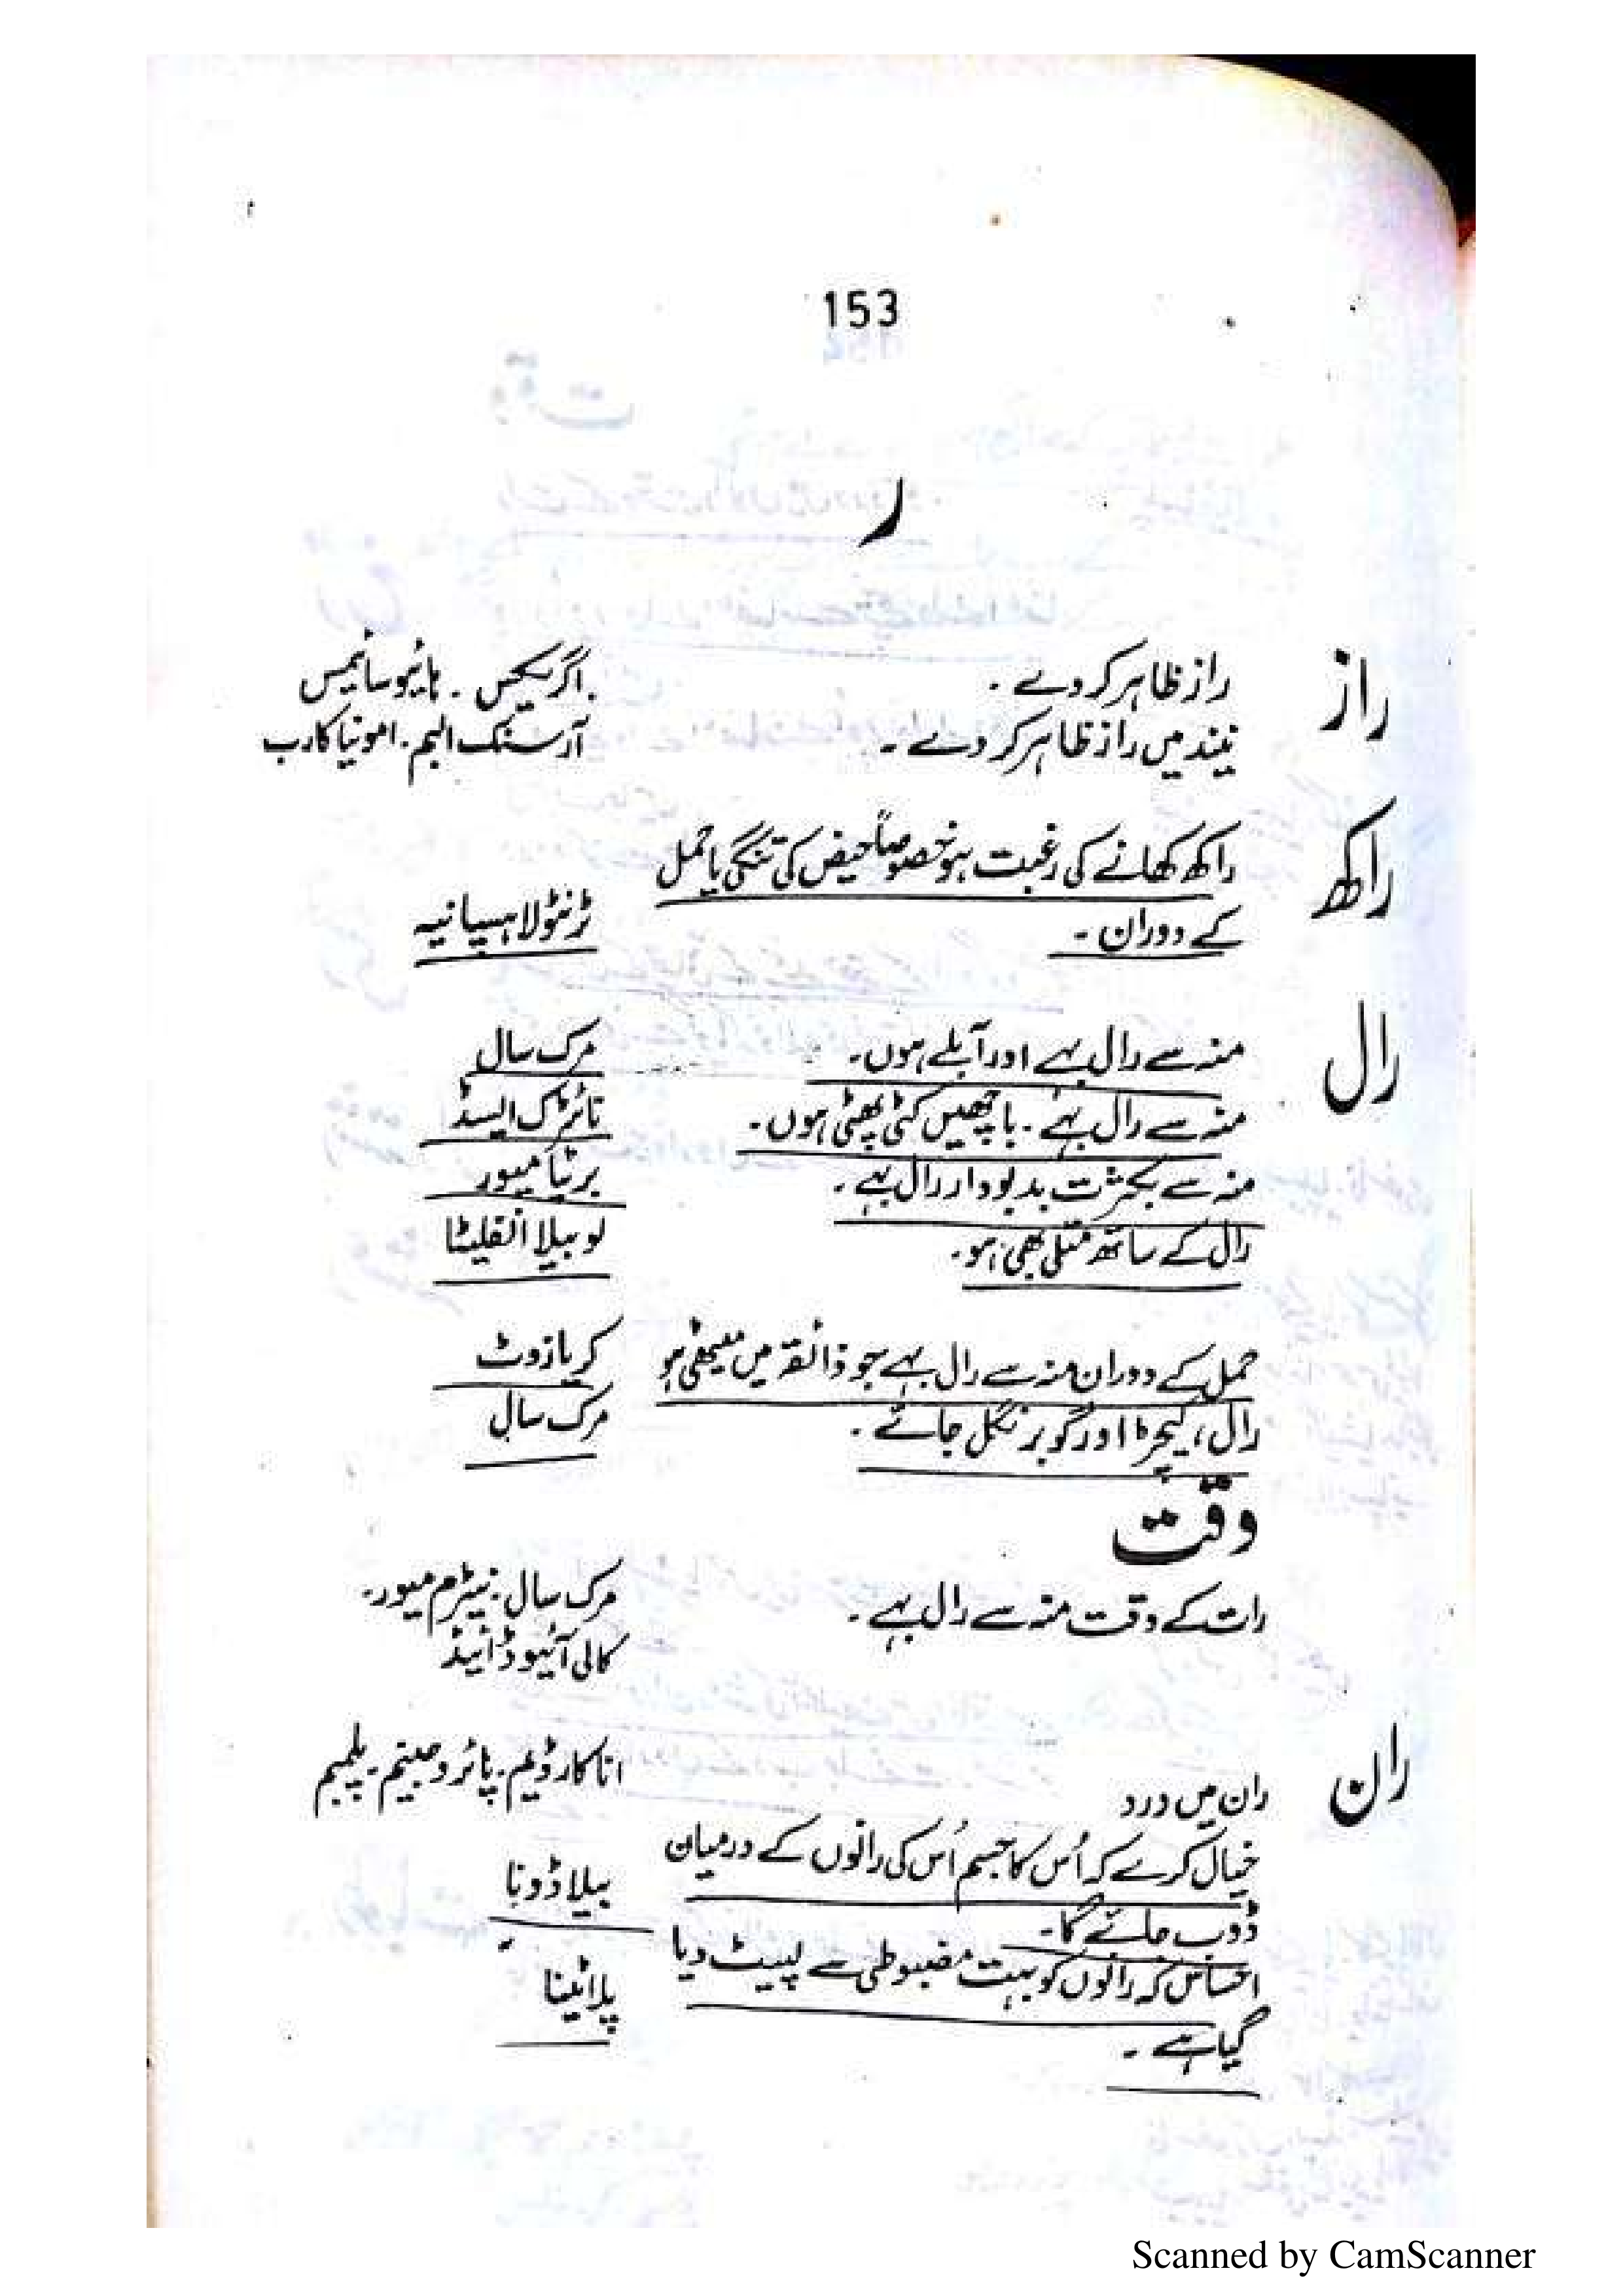 153
ر
راز
راز ظاہر کر دے ۔ اگریکس ۔ ہائیوسائیمس
نیند میں راز ظاہر کر دے ۔ آرسنک البم ۔ امونیا کارب
راکھ
راکھ کھانے کی رغبت ہو خصوصاً حیض کی تنگی یا حمل
کے دوران ۔ ٹرنٹولا ہسپانیہ
رال
منہ سے رال بہے اور آبلے ہوں ۔ مرک سال
منہ سے رال بہے ۔ باچھیں کٹی پھٹی ہوں ۔ نائٹرک ایسڈ
منہ سے بکثرت بدبودار رال بہے ۔ بریٹا میور
رال کے ساتھ متلی بھی ہو ۔ لوبیلا انفلیٹا
حمل کے دوران منہ سے رال بہے جو ذائقہ میں میٹھی ہو کریازوٹ
رال، کیچڑ اور گوبر نگل جائے ۔ مرک سال
وقت
رات کے وقت منہ سے رال بہے ۔ مرک سال ۔ نیٹرم میور ۔
کالی آئیوڈائیڈ
ران
ران میں درد اناکارڈیم ۔ پائروجینم ۔ پلمبم
خیال کرے کہ اُس کا جسم اُس کی رانوں کے درمیان
ڈوب جائے گا ۔ بیلاڈونا
احساس کہ رانوں کو بہت مضبوطی سے لپیٹ دیا
گیا ہے ۔ پلاٹینا
Scanned by CamScanner